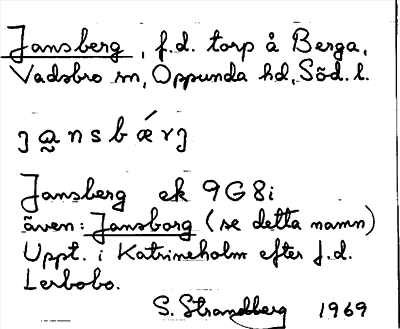 Jansberg, f.d. torp å Berga,
Vadsbro sn, Oppunda hd, Söd. l.
ʒa̰nsbǽrʒ
Jansberg ek 9G8i
även: Jansborg (se detta namn)
Uppt. i Katrineholm efter f.d.
Lerbobo.
S. Strandberg 1969